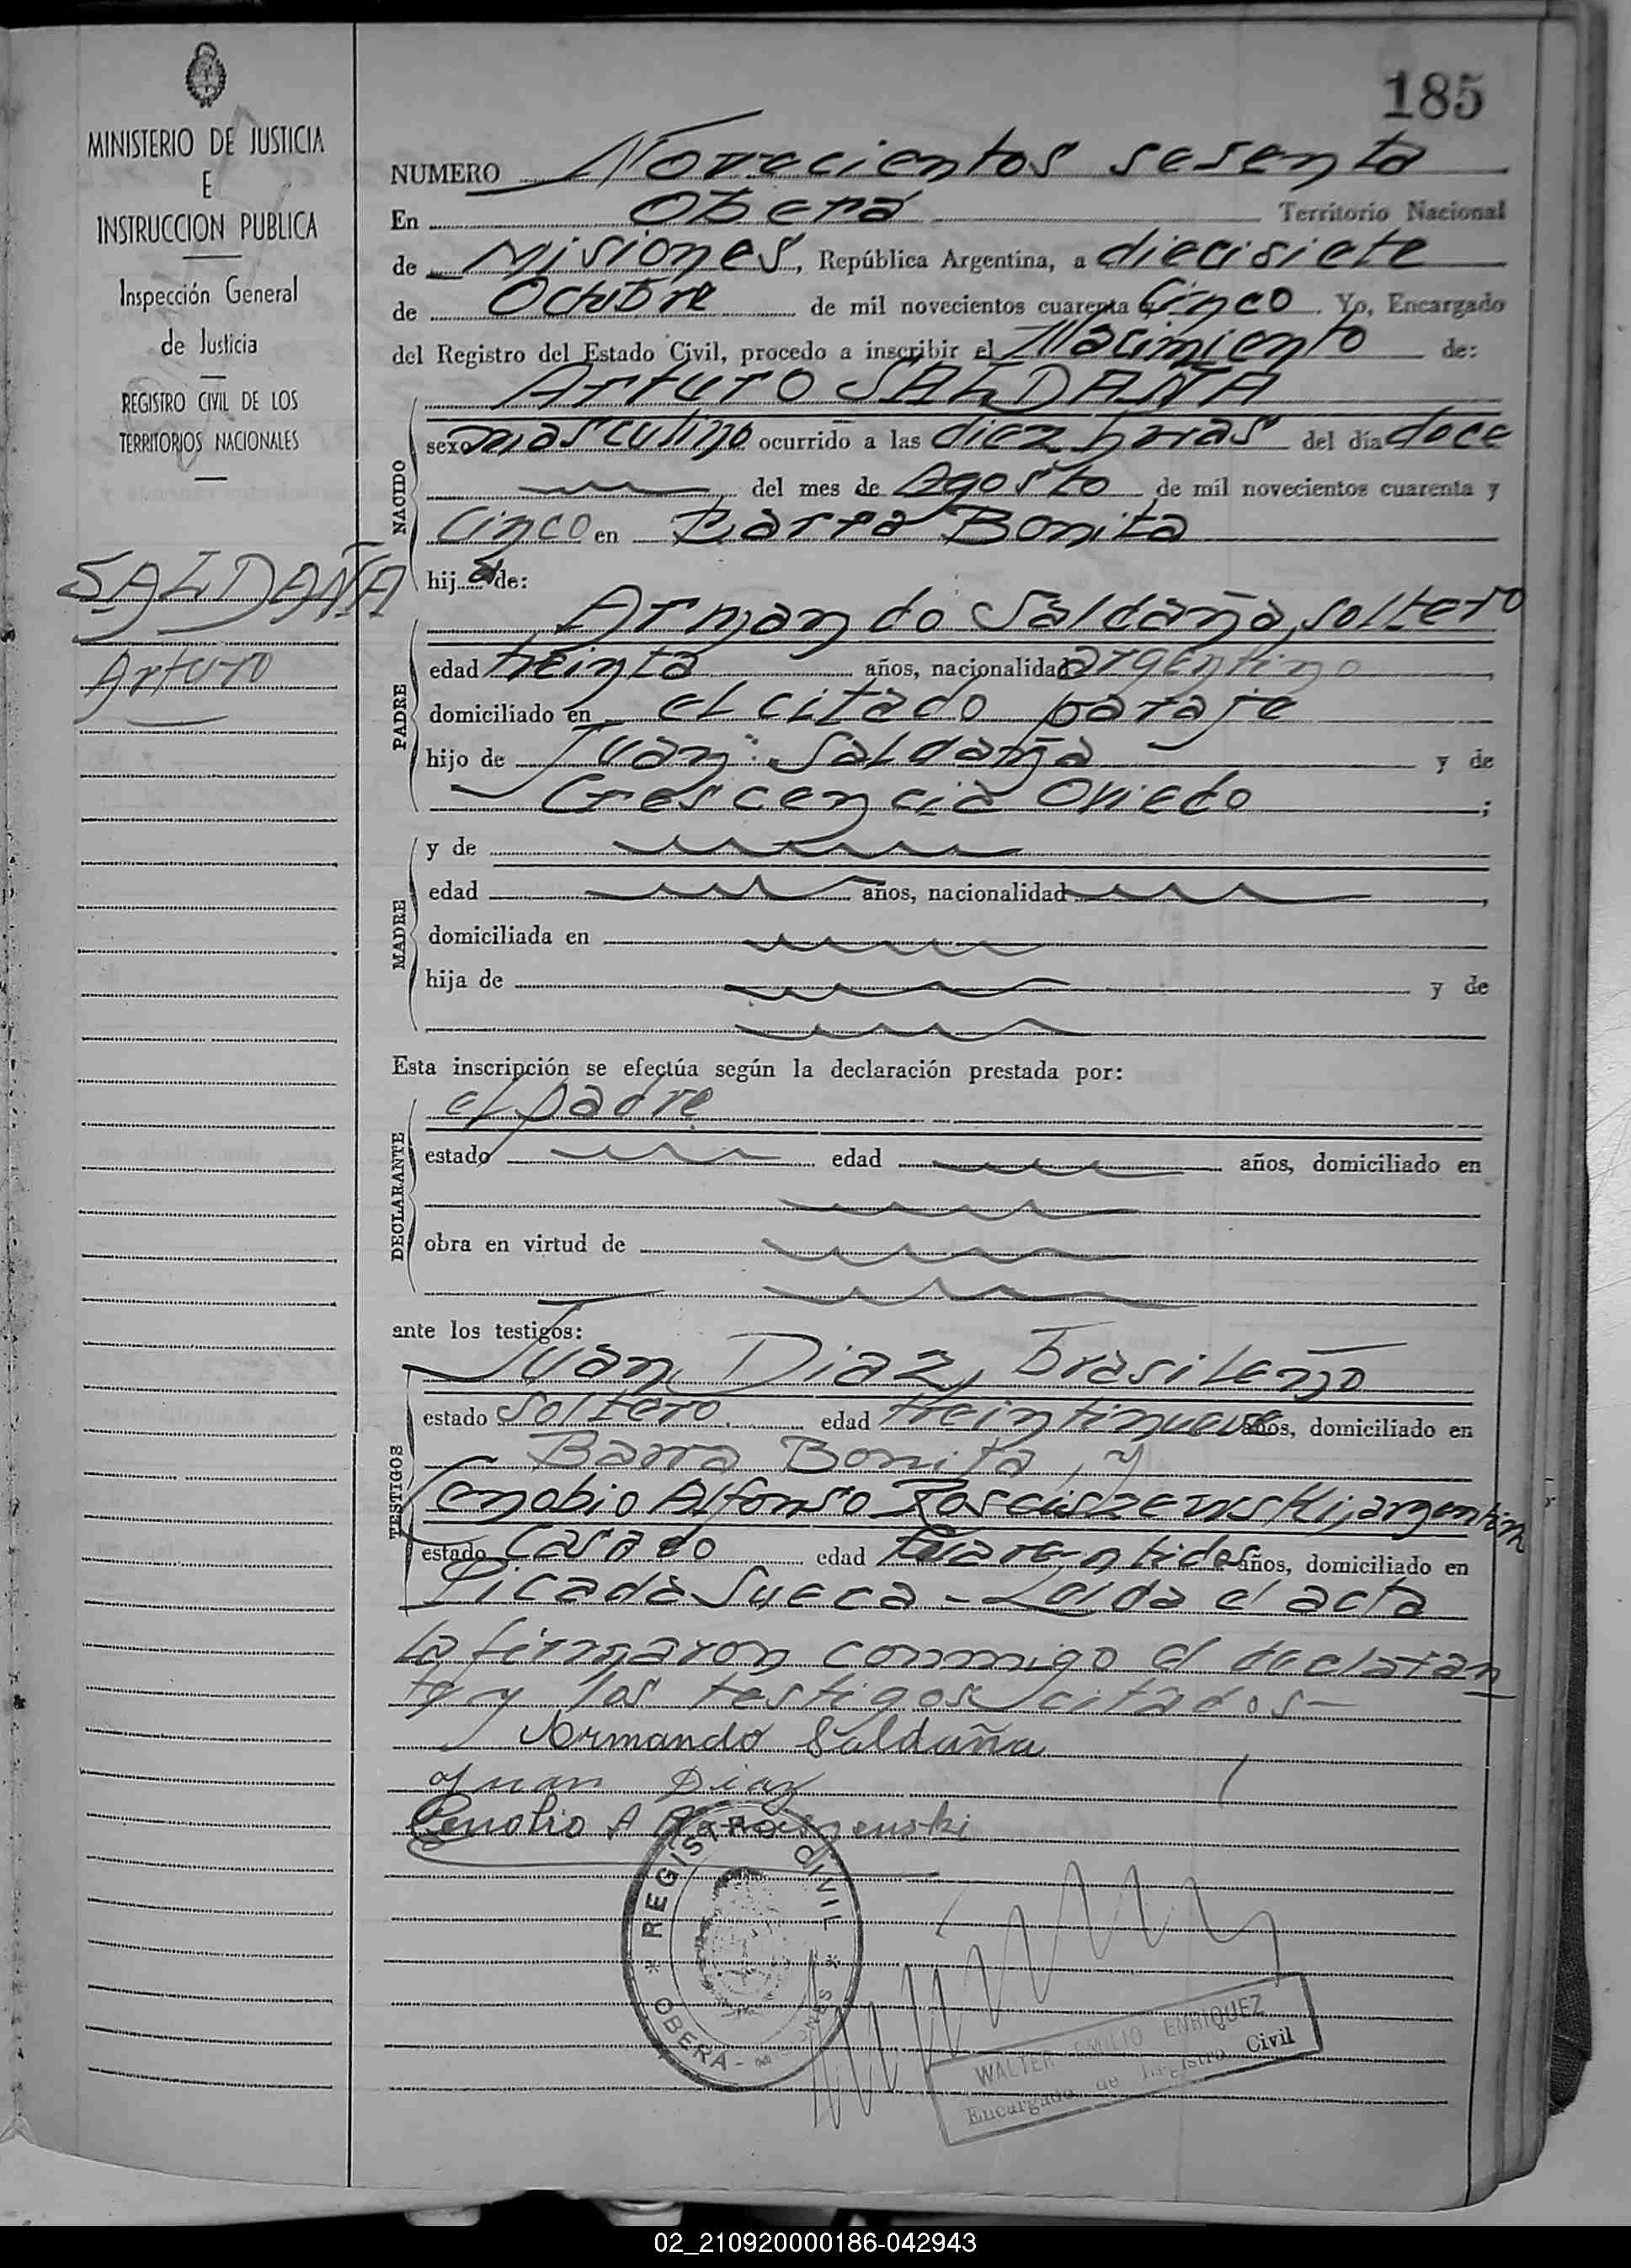 MINISTERIO DE JUSTICIA
E
INSTRUCCION PUBLICA
Inspección General
de Justicia
REGISTRO CIVIL DE LOS
TERRITORIOS NACIONALES
SALDAÑA
Arturo
185
NUMERO Novecientos sesenta
En Oberá Territorio Nacional
de Misiones, República Argentina, a diecisiete
de Octubre de mil novecientos cuarenta y Cinco. Yo, Encargado
del Registro del Estado Civil, procedo a inscribir el Nacimiento de:
Arturo SALDAÑA
NACIDO
sexo masculino ocurrido a las diez horas del día doce
del mes de Agosto de mil novecientos cuarenta y
Cinco en Barra Bonita
hijo de:
PADRE
Armando Saldaña, soltero
edad treinta años, nacionalidad argentino,
domiciliado en el citado paraje
hijo de Juan Saldaña y de
Crescencia Oviedo;
MADRE
y de
edad años, nacionalidad,
domiciliada en
hija de y de
Esta inscripción se efectúa según la declaración prestada por:
DECLARANTE
el padre
estado edad años, domiciliado en
obra en virtud de
ante los testigos:
TESTIGOS
Juan Diaz, brasileño
estado Soltero edad treintinueve años, domiciliado en
Barra Bonita, y
Cenobio Alfonso Rosciszewski, argentin
estado Casado edad Cuarentidos años, domiciliado en
Picada Sueca - Leida el acta
la firmaron conmigo el declaran
te y los testigos citados-
Armando Saldaña
Juan Diaz
Cenobio A
REGISTRO CIVIL
OBERA - MISIONES
WALTER EMILIO ENRIQUEZ
Encargado de Registro Civil
02_210920000186-042943